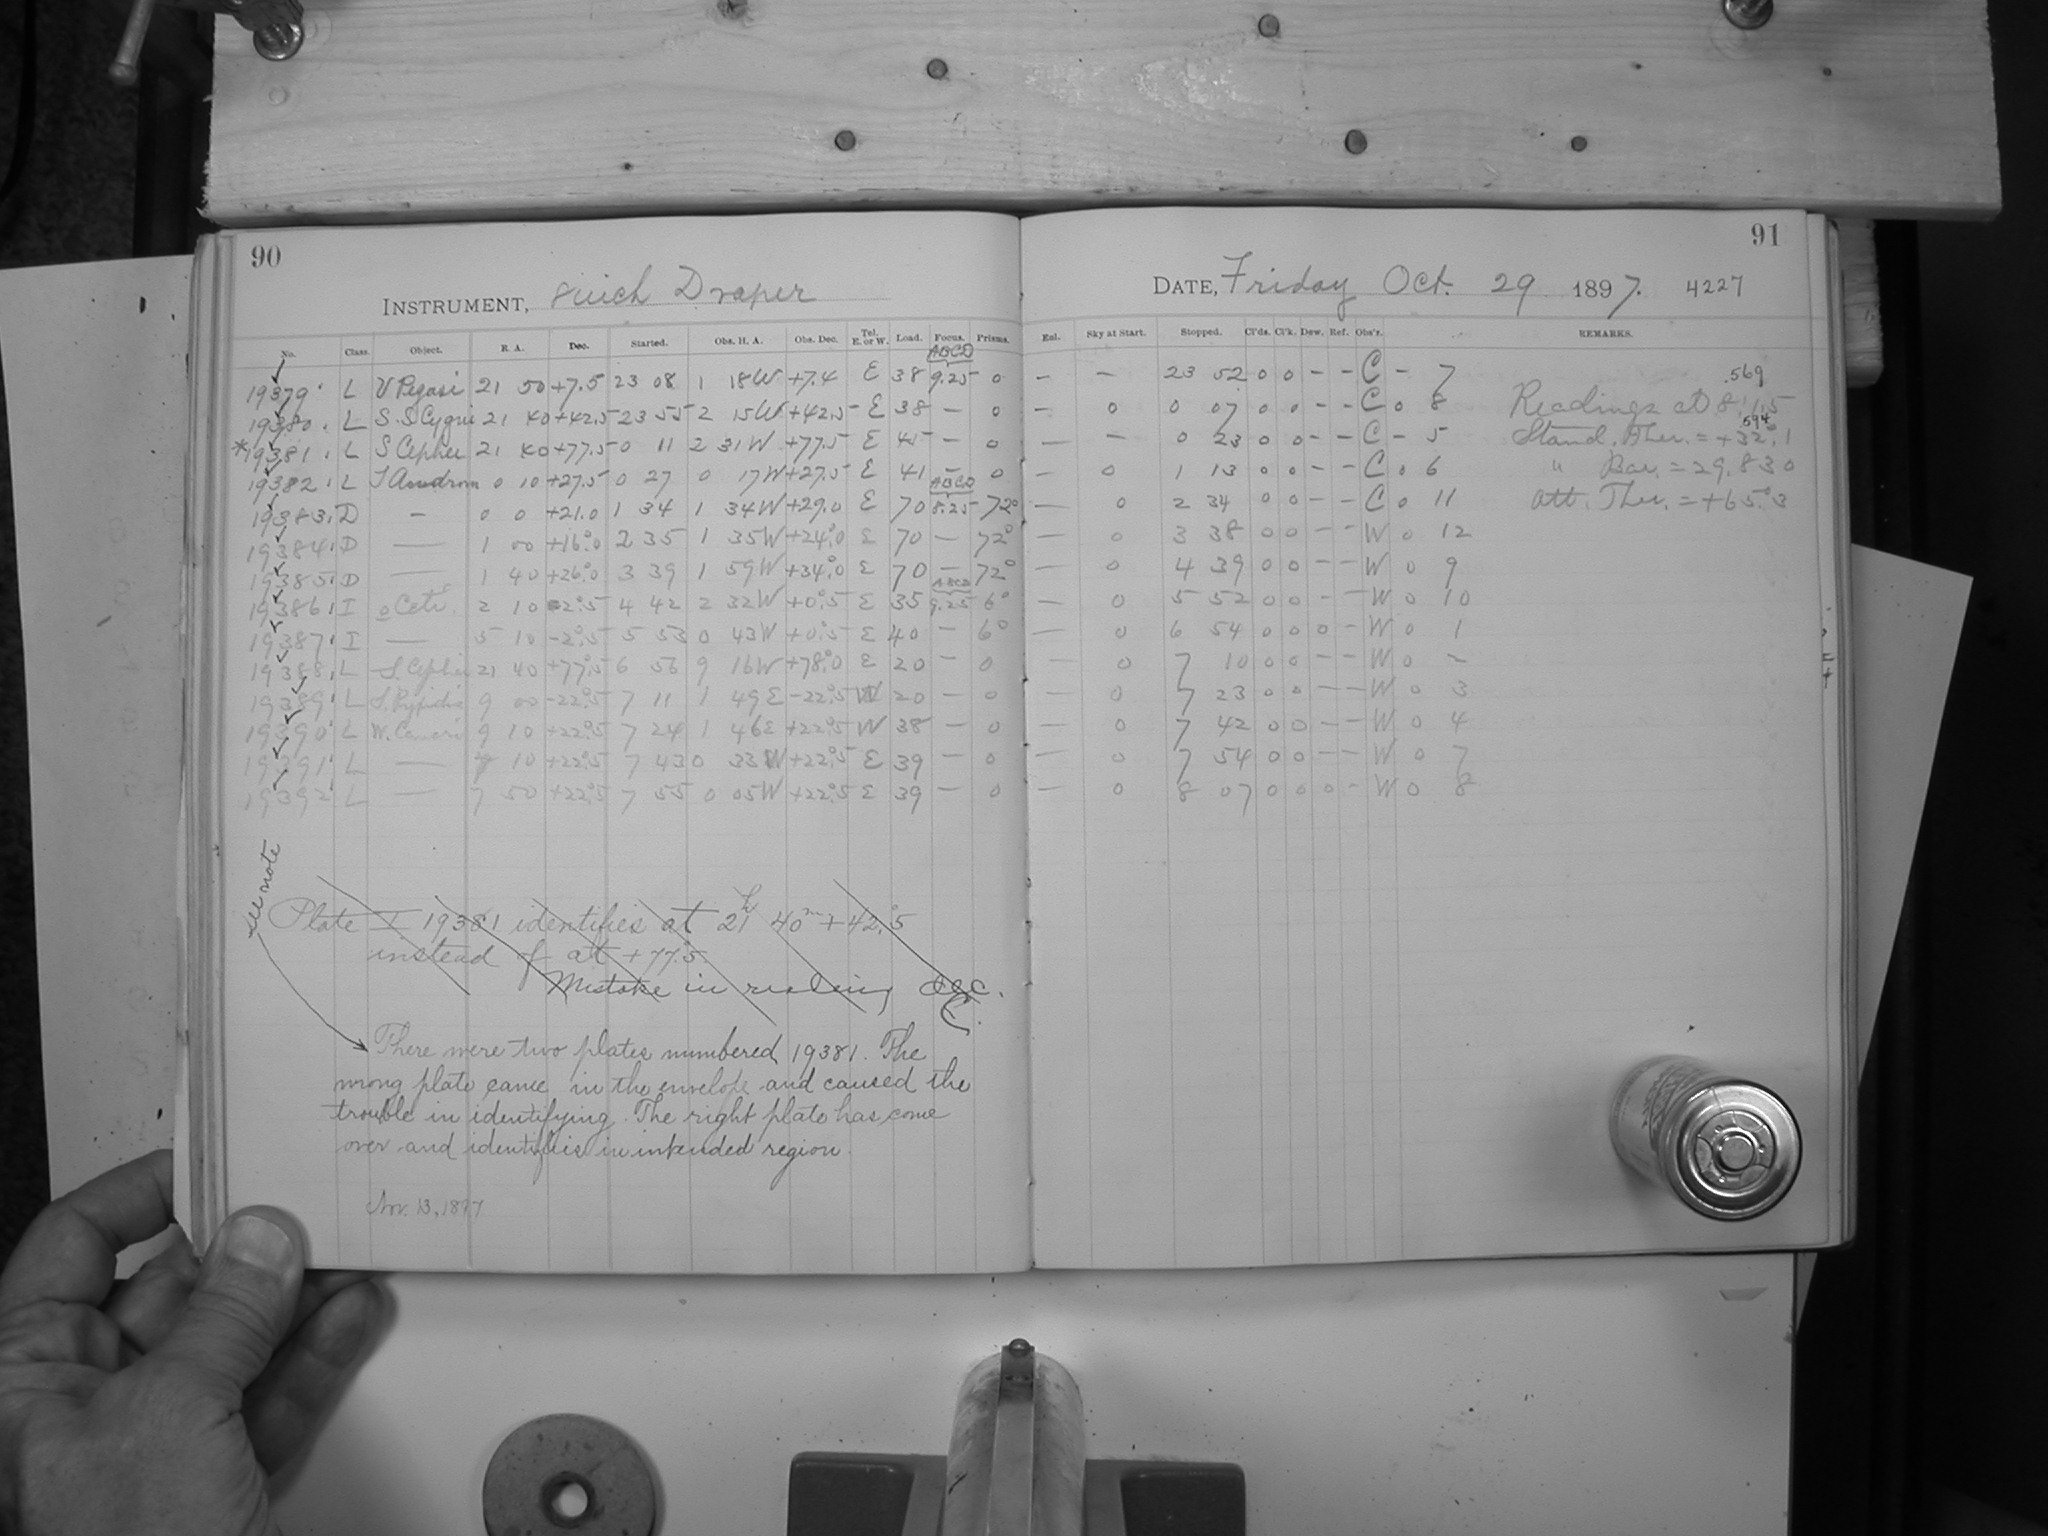 90
INSTRUMENT, 8 inch Draper
No. Class. Object. R. A. Dec. Started. Obs. H. A. Obs. Dec. Tel. E. or W. Load. Focus. Prisms.
ABCD
19379 L V Pegasi 21 50 +7.5 23 08 1 18W +7.4 E 38 9.25 0
19380 L S.S. Cygni 21 40 +42.5 23 55 2 15W +42.5 E 38 — 0
*19381 L S Cephei 21 40 +77.5 0 11 2 31W +77.5 E 45 — 0
19382 L T Androm 0 10 +27.5 0 27 0 17W +27.5 E 41 — 0
ABCD
19383 D — 0 0 +21.0 1 34 1 34W +29.0 E 70 8.25 72°
19384 D — 1 00 +16°.0 2 35 1 35W +24°.0 E 70 — 72°
19385 D — 1 40 +26°.0 3 39 1 59W +34°.0 E 70 — 72°
ABCD
19386 I o Ceti 2 10 -2°.5 4 42 2 32W +0°.5 E 35 9.25 6°
19387 I — 5 10 -2°.5 5 53 0 43W +0°.5 E 40 — 6°
19388 L S. Cephei 21 40 +77°.5 6 56 9 16W +78°.0 E 20 — 0
19389 L 9 00 -22°.5 7 11 1 49E -22°.5 W 20 — 0
19390 L W. Cancri 9 10 +22°.5 7 24 1 46E +22°.5 W 38 — 0
19391 L — 7 10 +22°.5 7 43 0 33W +22°.5 E 39 — 0
19392 L — 7 50 +22°.5 7 55 0 05W +22°.5 E 39 — 0
see note
Plate I 19381 identifies at 21h 40m + 42°.5
instead of at +77°.5
Mistake in reading dec.
C.
There were two plates numbered 19381. The
wrong plate came in the envelope and caused the
trouble in identifying. The right plate has come
over and identifies in intended region.
Nov. 13, 1897
91
DATE, Friday Oct. 29 1897. 4227
Enl. Sky at Start. Stopped. Cl'ds. Cl'k. Dew. Ref. Obs'r. REMARKS.
— — 23 52 0 0 - - C - 7
— 0 0 07 0 0 - - C 0 8
— — 0 23 0 0 - - C - 5
— 0 1 13 0 0 - - C 0 6
— 0 2 34 0 0 - - C 0 11
— 0 3 38 0 0 - - W 0 12
— 0 4 39 0 0 - - W 0 9
— 0 5 52 0 0 - - W 0 10
— 0 6 54 0 0 0 - W 0 1
— 0 7 10 0 0 - - W 0 2
— 0 7 23 0 0 - - W 0 3
— 0 7 42 0 0 - - W 0 4
— 0 7 54 0 0 - - W 0 7
— 0 8 07 0 0 0 - W 0 8
.569
Readings at 8, 15
.594
Stand. Ther. = +32°.1
" Bar. = 29.830
Att. Ther. = +65°.3